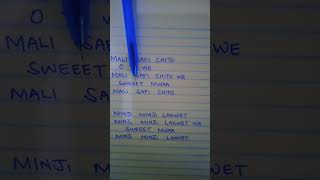 MALI SAFI CHITO
O WE
MALI SAFI CHITO WE
SWEEET MWAA
MALI SAFI CHITO
MINJI MINJI LAKWET
MINJI MINJI LAKWET WE
SWEEET MWAA
MINJI MINJI LAKWET